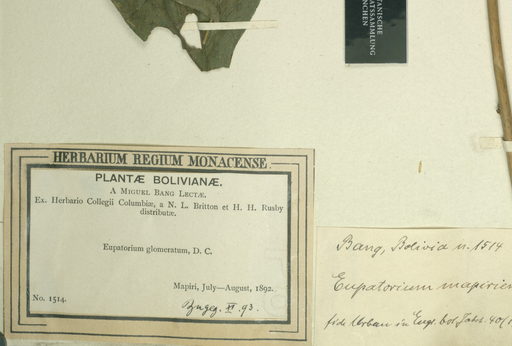 TANISCHE
ATSSAMMLUNG
NCHEN
HERBARIUM REGIUM MONACENSE.
PLANTÆ BOLIVIANÆ.
A MIGUEL BANG LECTÆ.
Ex. Herbario Collegii Columbiæ, a N. L. Britton et H. H. Rusby
distributæ.
Eupatorium glomeratum, D. C.
Mapiri, July—August, 1892.
No. 1514.
XI. 93.
Bang, Bolivia n. 1514
Eupatorium mapirien
fide Urban in Engl. bot. Jahrb. 40/1